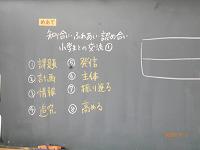 めあて
知り合い ふれあい 認め合い
小学生との交流①
①課題 ⑤発信
②計画 ⑥主体
③情報 ⑦振り返る
④追究 ⑧高める